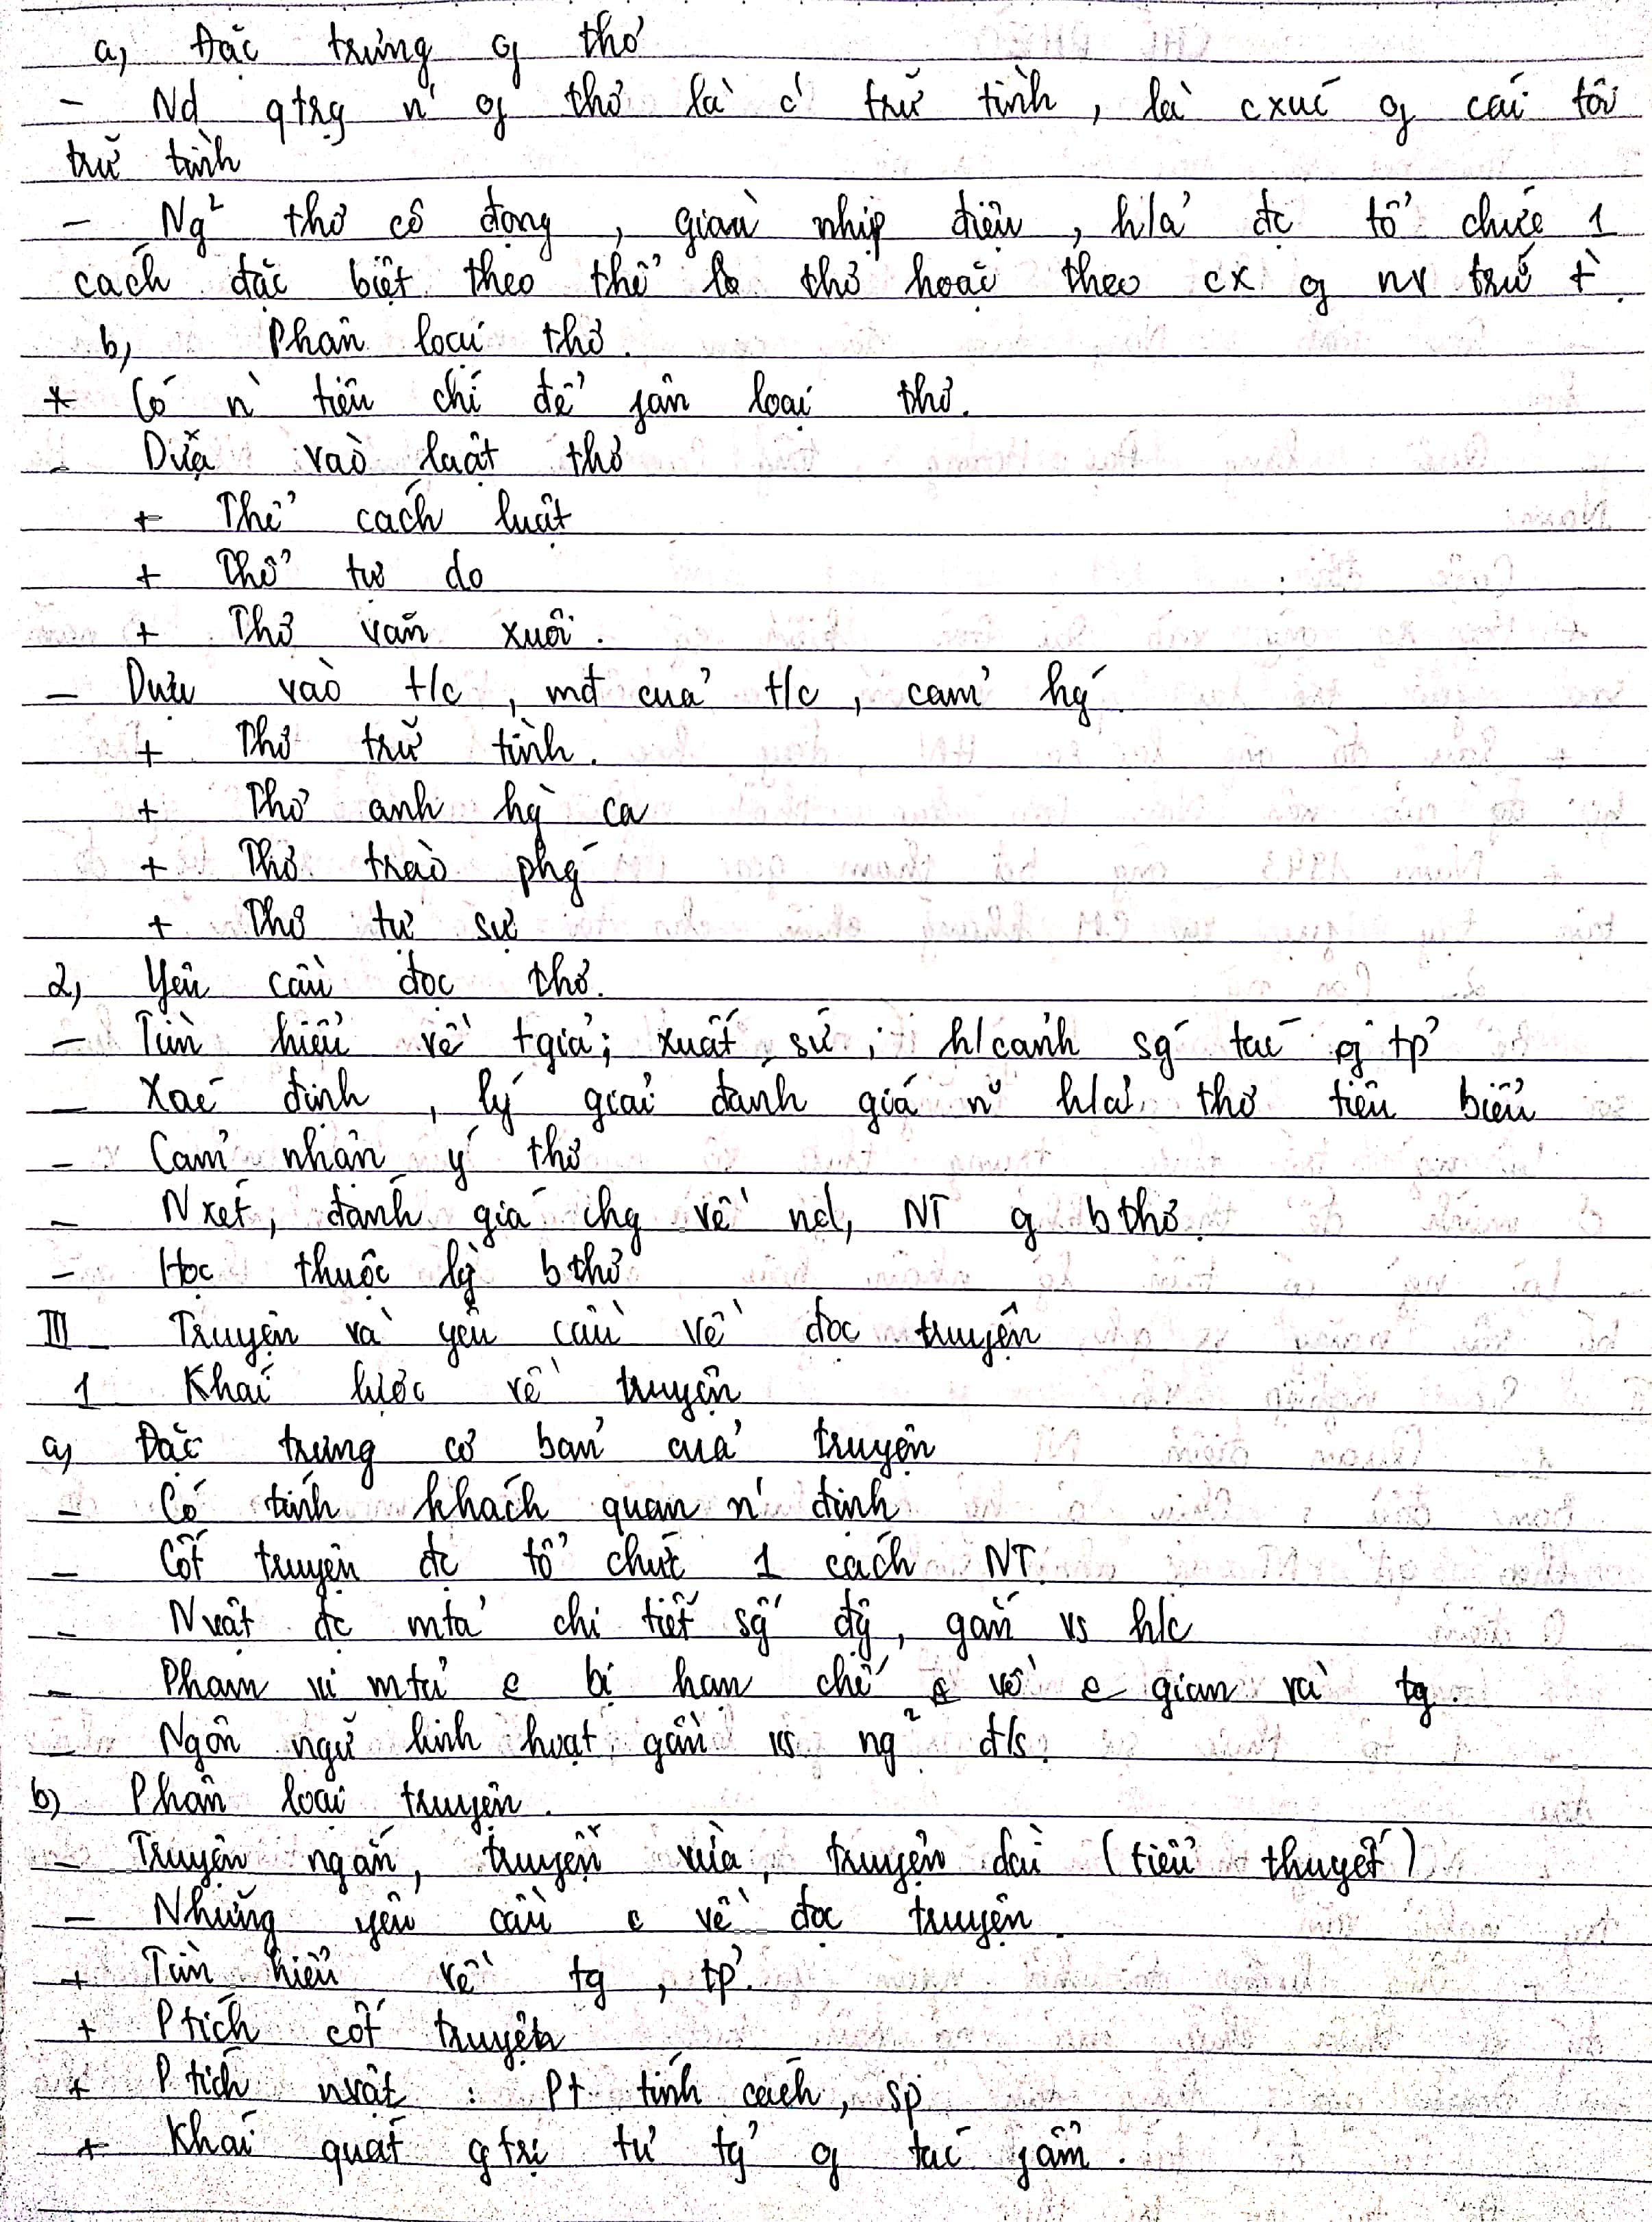 a, Đặc trưng of thơ
- Nd qtrg n' of thơ là c' trữ tình, là cxúc of cái tôi
trữ tình
- Ng² thơ cô đọng, giàu nhịp điệu, h/ả đc tổ chức 1
cách đặc biệt theo thể lo thơ hoặc theo cx of nv trữ t`.
b, Phân loại thơ.
* Có n` tiêu chí để fân loại thơ.
- Dựa vào luật thơ
+ Thể cách luật
+ Thể tự do
+ Thơ văn xuôi.
- Dựa vào t/c, mđ của t/c, cảm hg´
+ Thơ trữ tình.
+ Thơ anh hg` ca
+ Thơ trào phg´
+ Thơ tự sự
2, Yêu cầu đọc thơ.
- Tìm hiểu về tgiả; xuất sứ; h/cảnh sg´ tác of tp'
- Xác định, lý giải đánh giá n~ h/ả thơ tiêu biểu
- Cảm nhận ý thơ
- Nxét, đánh giá chg về nd, NT of bthơ.
- Học thuộc lg` bthơ
III - Truyện và yêu cầu về đọc truyện
1 Khái lược về truyện
a, Đặc trưng cơ bản của truyện
- Có tính khách quan n' định
- Cốt truyện đc tổ chức 1 cách NT.
- Nvật đc mtả chi tiết sg´ đg, gắn vs h/c
- Phạm vi mtả e bị hạn chế về e gian và tg.
- Ngôn ngữ linh hoạt gần vs ng² đ/s.
b) Phân loại truyện.
- Truyện ngắn, truyện vừa, truyện dài (tiểu thuyết)
- Những yêu cầu c về đọc truyện.
+ Tìm hiểu về tg, tp'.
+ Ptích cốt truyện
+ Ptích nvật: Pt tính cách, sp
+ Khái quát gtrị tư tg' of tác fẩm.